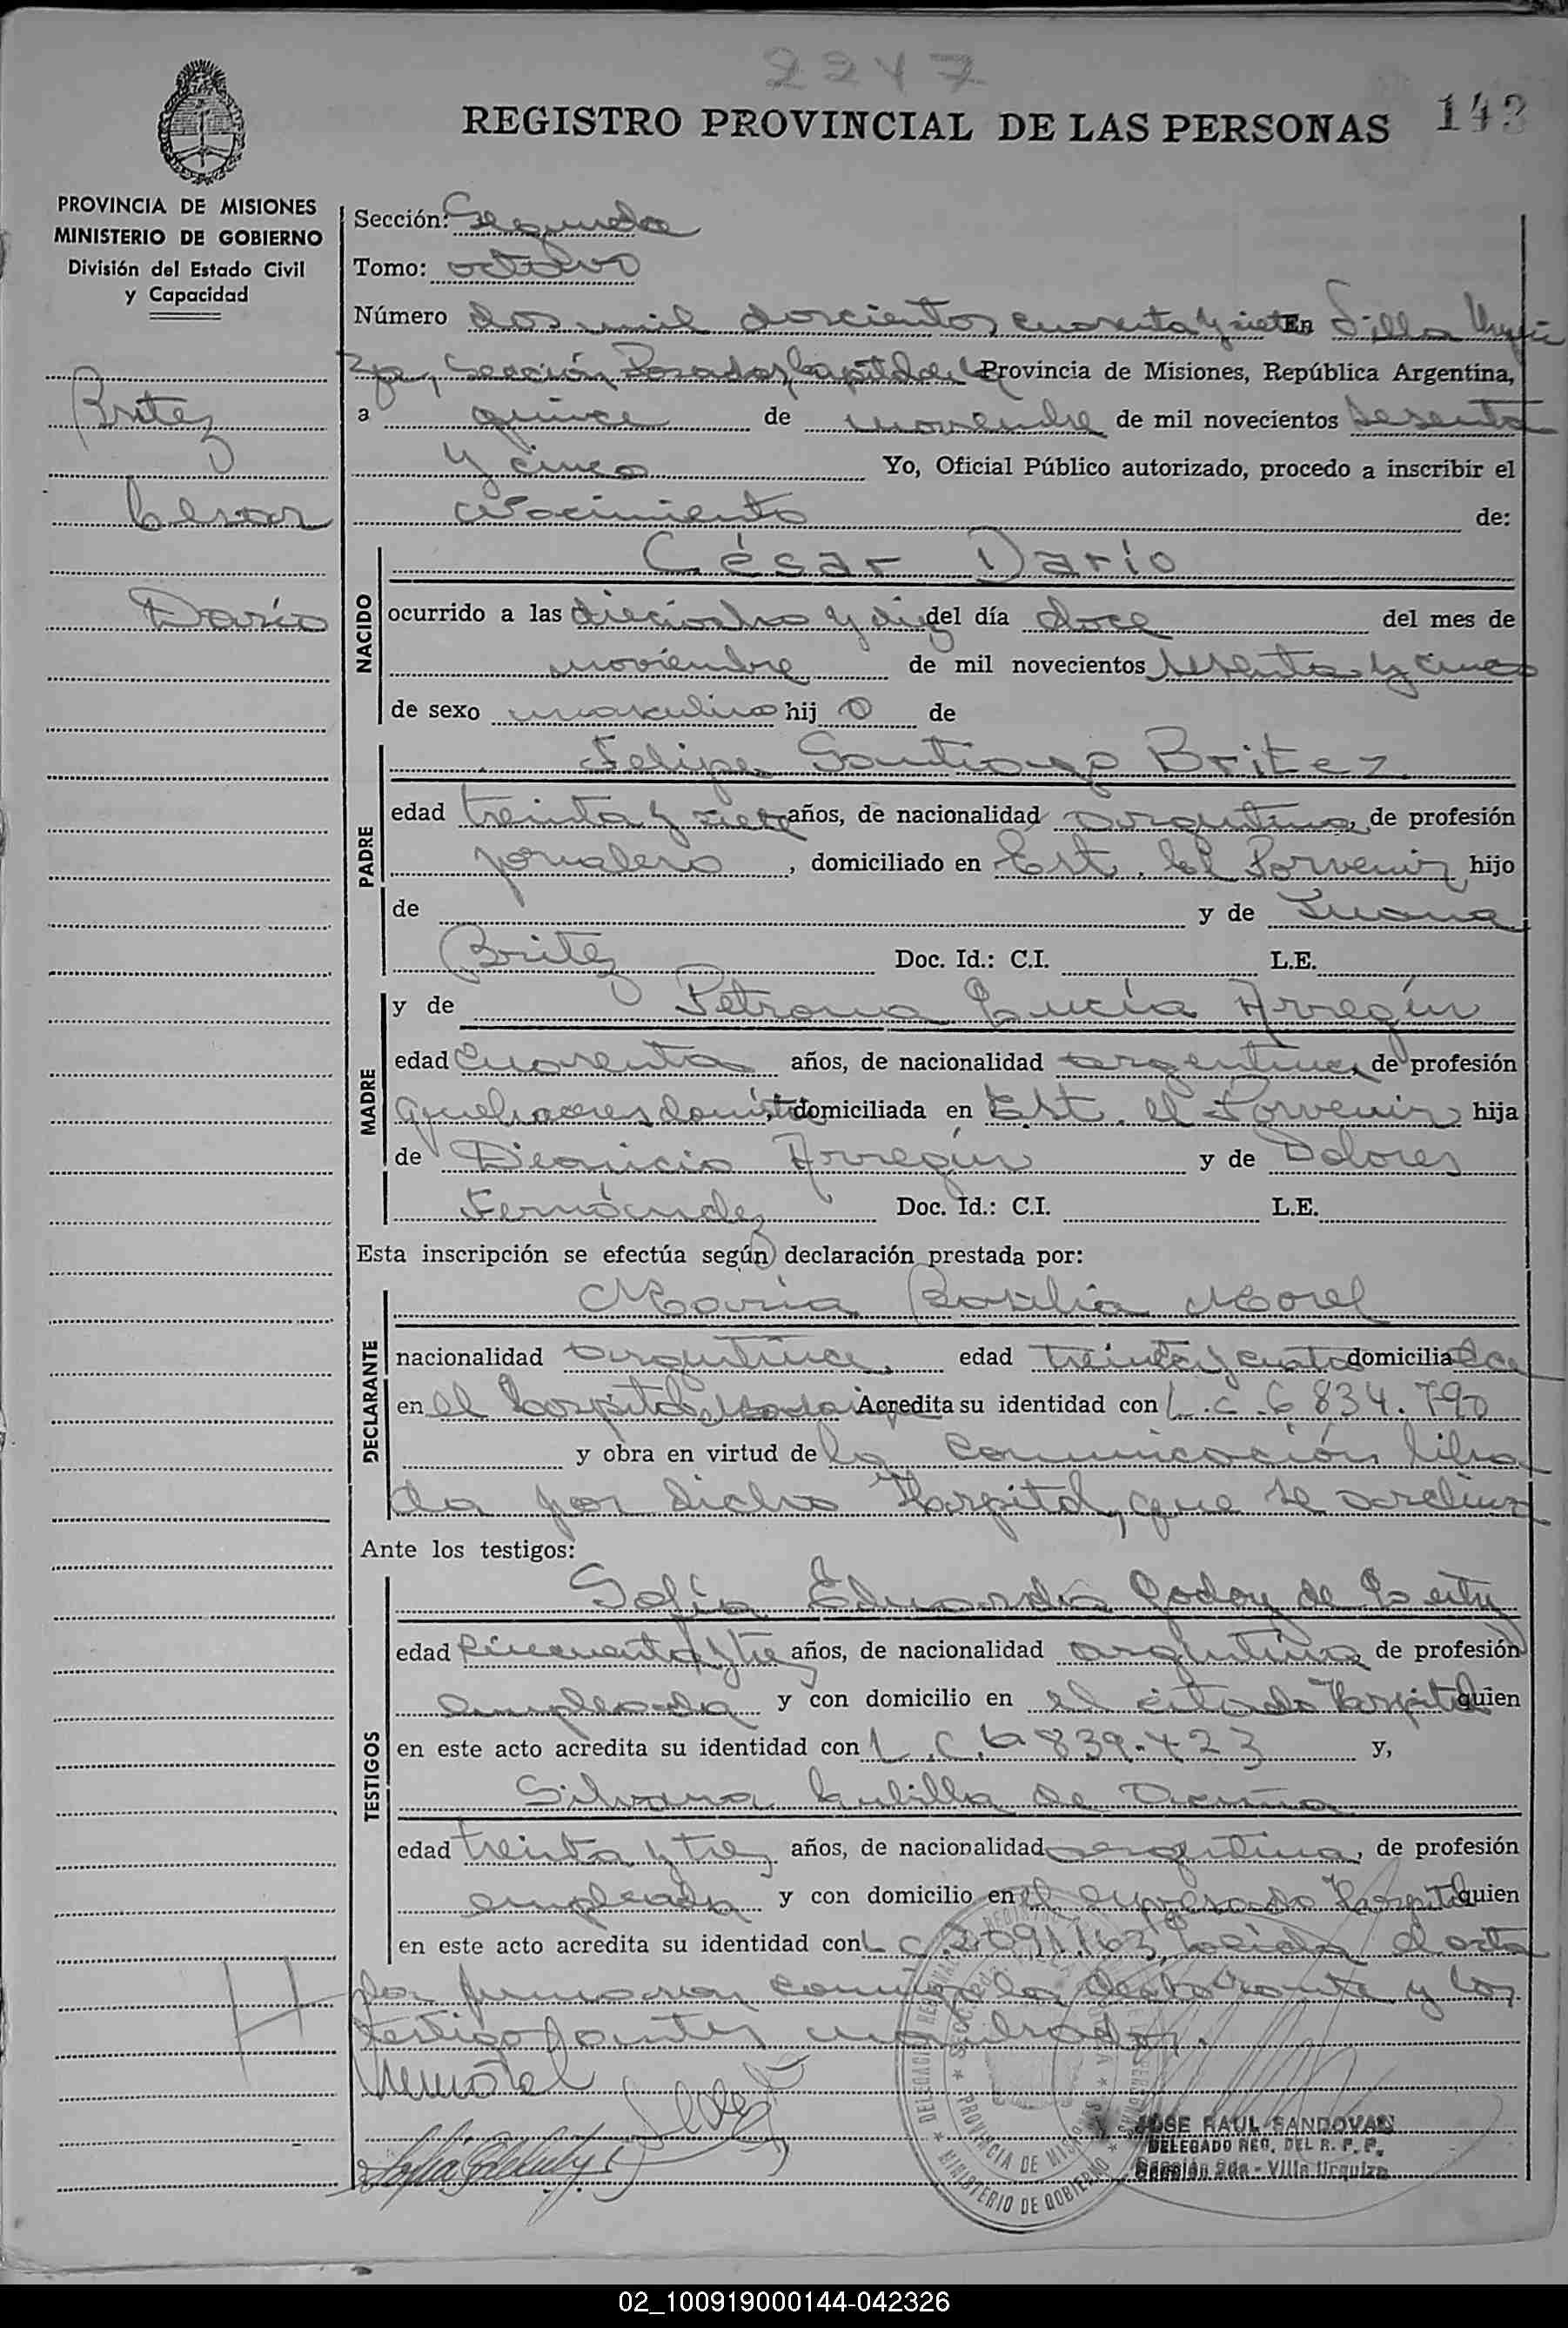 2247
REGISTRO PROVINCIAL DE LAS PERSONAS 143
PROVINCIA DE MISIONES
MINISTERIO DE GOBIERNO
División del Estado Civil
y Capacidad
Britez
Cesar
Darío
Sección: Segunda
Tomo: octavo
Número dos mil doscientos cuarenta y siete En Villa Urqui
za, Sección Posadas, Capital de la Provincia de Misiones, República Argentina,
a quince de noviembre de mil novecientos sesenta
y cinco Yo, Oficial Público autorizado, procedo a inscribir el
Nacimiento de:
NACIDO
César Darío
ocurrido a las dieciocho y diez del día doce del mes de
noviembre de mil novecientos sesenta y cinco
de sexo masculino hij o de
PADRE
Felipe Santiago Britez
edad treinta y siete años, de nacionalidad argentina, de profesión
jornalero, domiciliado en Est. El Porvenir hijo
de y de Juana
Britez Doc. Id.: C.I. L.E.
MADRE
y de Petrona Lucía Arregín
edad cuarenta años, de nacionalidad argentina, de profesión
quehaceres domést domiciliada en Est. el Porvenir hija
de Dionicio Arregín y de Dolores
Fernández Doc. Id.: C.I. L.E.
Esta inscripción se efectúa según declaración prestada por:
DECLARANTE
María Basilia Morel
nacionalidad argentina, edad treinta y cuatro domicilia da
en el hospital Madariaga Acredita su identidad con L.C. 6 834.790
y obra en virtud de la comunicación libra
da por dicho Hospital, que se archiva
Ante los testigos:
TESTIGOS
Sofía Eduarda Godoy de
edad cincuenta y tres años, de nacionalidad argentina de profesión
empleada y con domicilio en el citado Hospital quien
en este acto acredita su identidad con L.C. 6 839.423 y,
Silvana Cubilla de Acuña
edad treinta y tres años, de nacionalidad argentina, de profesión
empleada y con domicilio en el expresado Hospital quien
en este acto acredita su identidad con L C. 2.091.163, Leída el acta
la firmaron conmigo la declarante y los
testigos antes nombrados.
Mmorel
JOSE RAUL SANDOVAL
DELEGADO REG. DEL R. P. P.
Sección 2da - Villa Urquiza
PROVINCIA DE MISIONES
MINISTERIO DE GOBIERNO
02_100919000144-042326